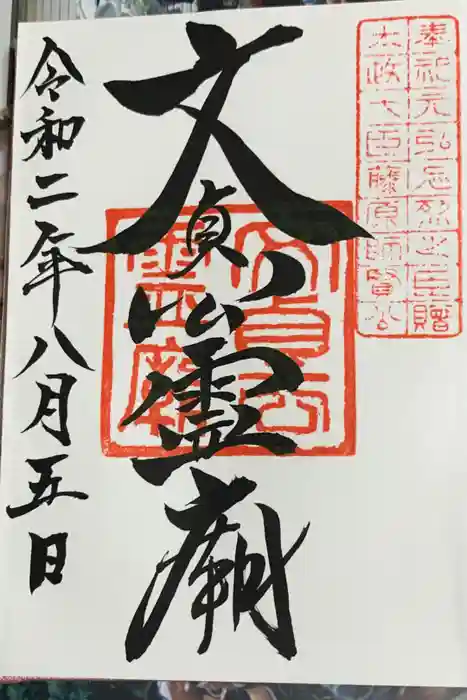 奉祀元弘忠烈之臣贈
太政大臣藤原師賢公
文貞公霊廟
文貞公
霊廟
令和二年八月五日